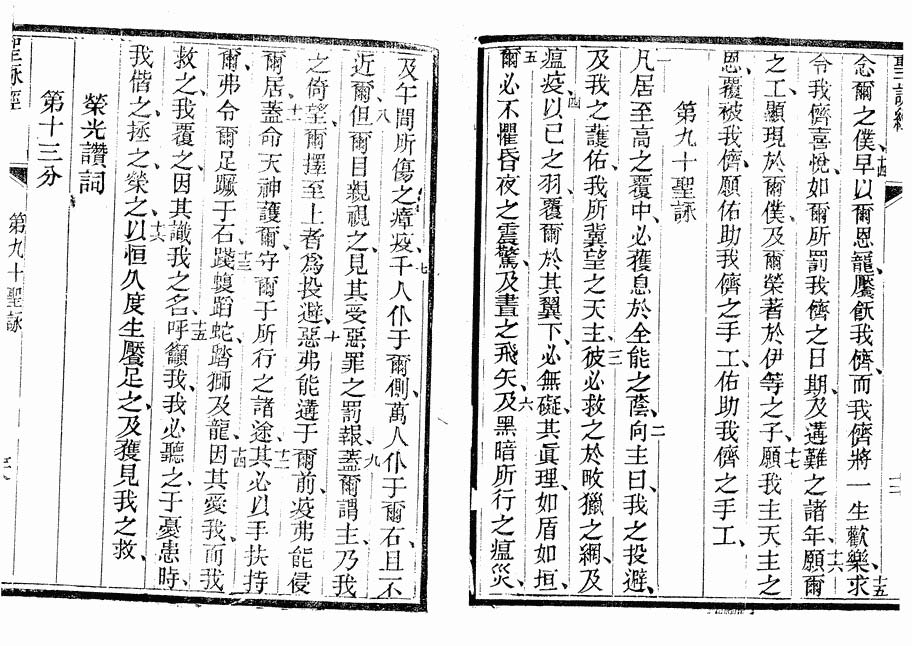 聖詠經
念爾之僕早以爾恩寵饜飫我儕而我儕將一生歡樂求
令我儕喜悅如爾所罰我儕之日期及遘難之諸年願爾
之工顯現於爾僕及爾榮著於伊等之子願我主天主之
恩覆被我儕願佑助我儕之手工佑助我儕之手工
第九十聖詠
凡居至高之覆中必獲息於全能之蔭向主曰我之投避
及我之護佑我所冀望之天主彼必救之於畋獵之網及
瘟疫以已之羽覆爾於其翼下必無礙其眞理如盾如垣
爾必不懼昏夜之震驚及晝之飛矢及黑暗所行之瘟災
及午間所傷之瘴疫千人仆于爾側萬人仆于爾右且不
近爾但爾目親視之見其受惡罪之罰報蓋爾謂主乃我
之倚望爾擇至上者爲投避惡弗能遘于爾前疫弗能侵
爾居蓋命天神護爾守爾于所行之諸途其必以手扶持
爾弗令爾足蹶于石踐蝮蹈蛇踏獅及龍因其愛我而我
救之我覆之因其識我之名呼籲我我必聽之于憂患時
我偕之拯之榮之以恒久度生饜足之及獲見我之救
榮光讚詞
第十三分
聖詠經
第九十聖詠